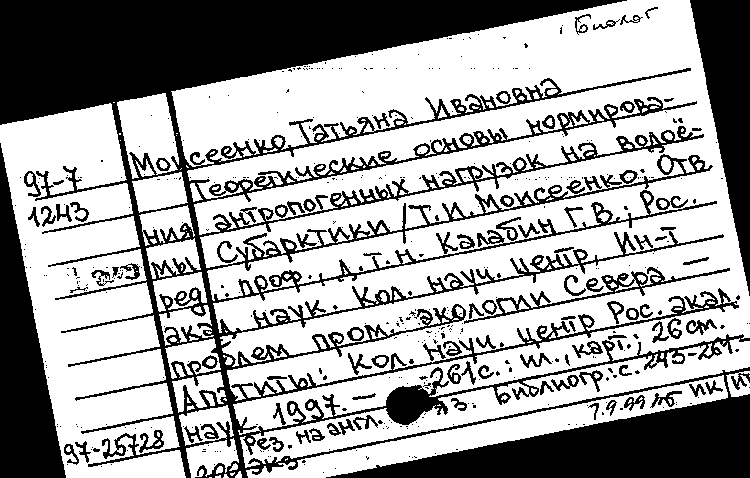 Биолог
Моисеенко, Татьяна Ивановна
97-7
Теоретические основы нормирова-
1243
ния антропогенных нагрузок на водоё-
мы Субарктики / Т.И. Моисеенко; Отв.
ред.: проф., д.т.н. Калабин Г.В.; Рос.
акад. наук. Кол. науч. центр, Ин-т
проблем пром. экологии Севера. —
Апатиты: Кол. науч. центр Рос. акад.
наук, 1997. — 261с.: ил., карт.; 26 см.
97-25728
Рез. на англ. яз. Библиогр.: с. 243-261.-
200 экз.
7.9.99 ПК/ИП